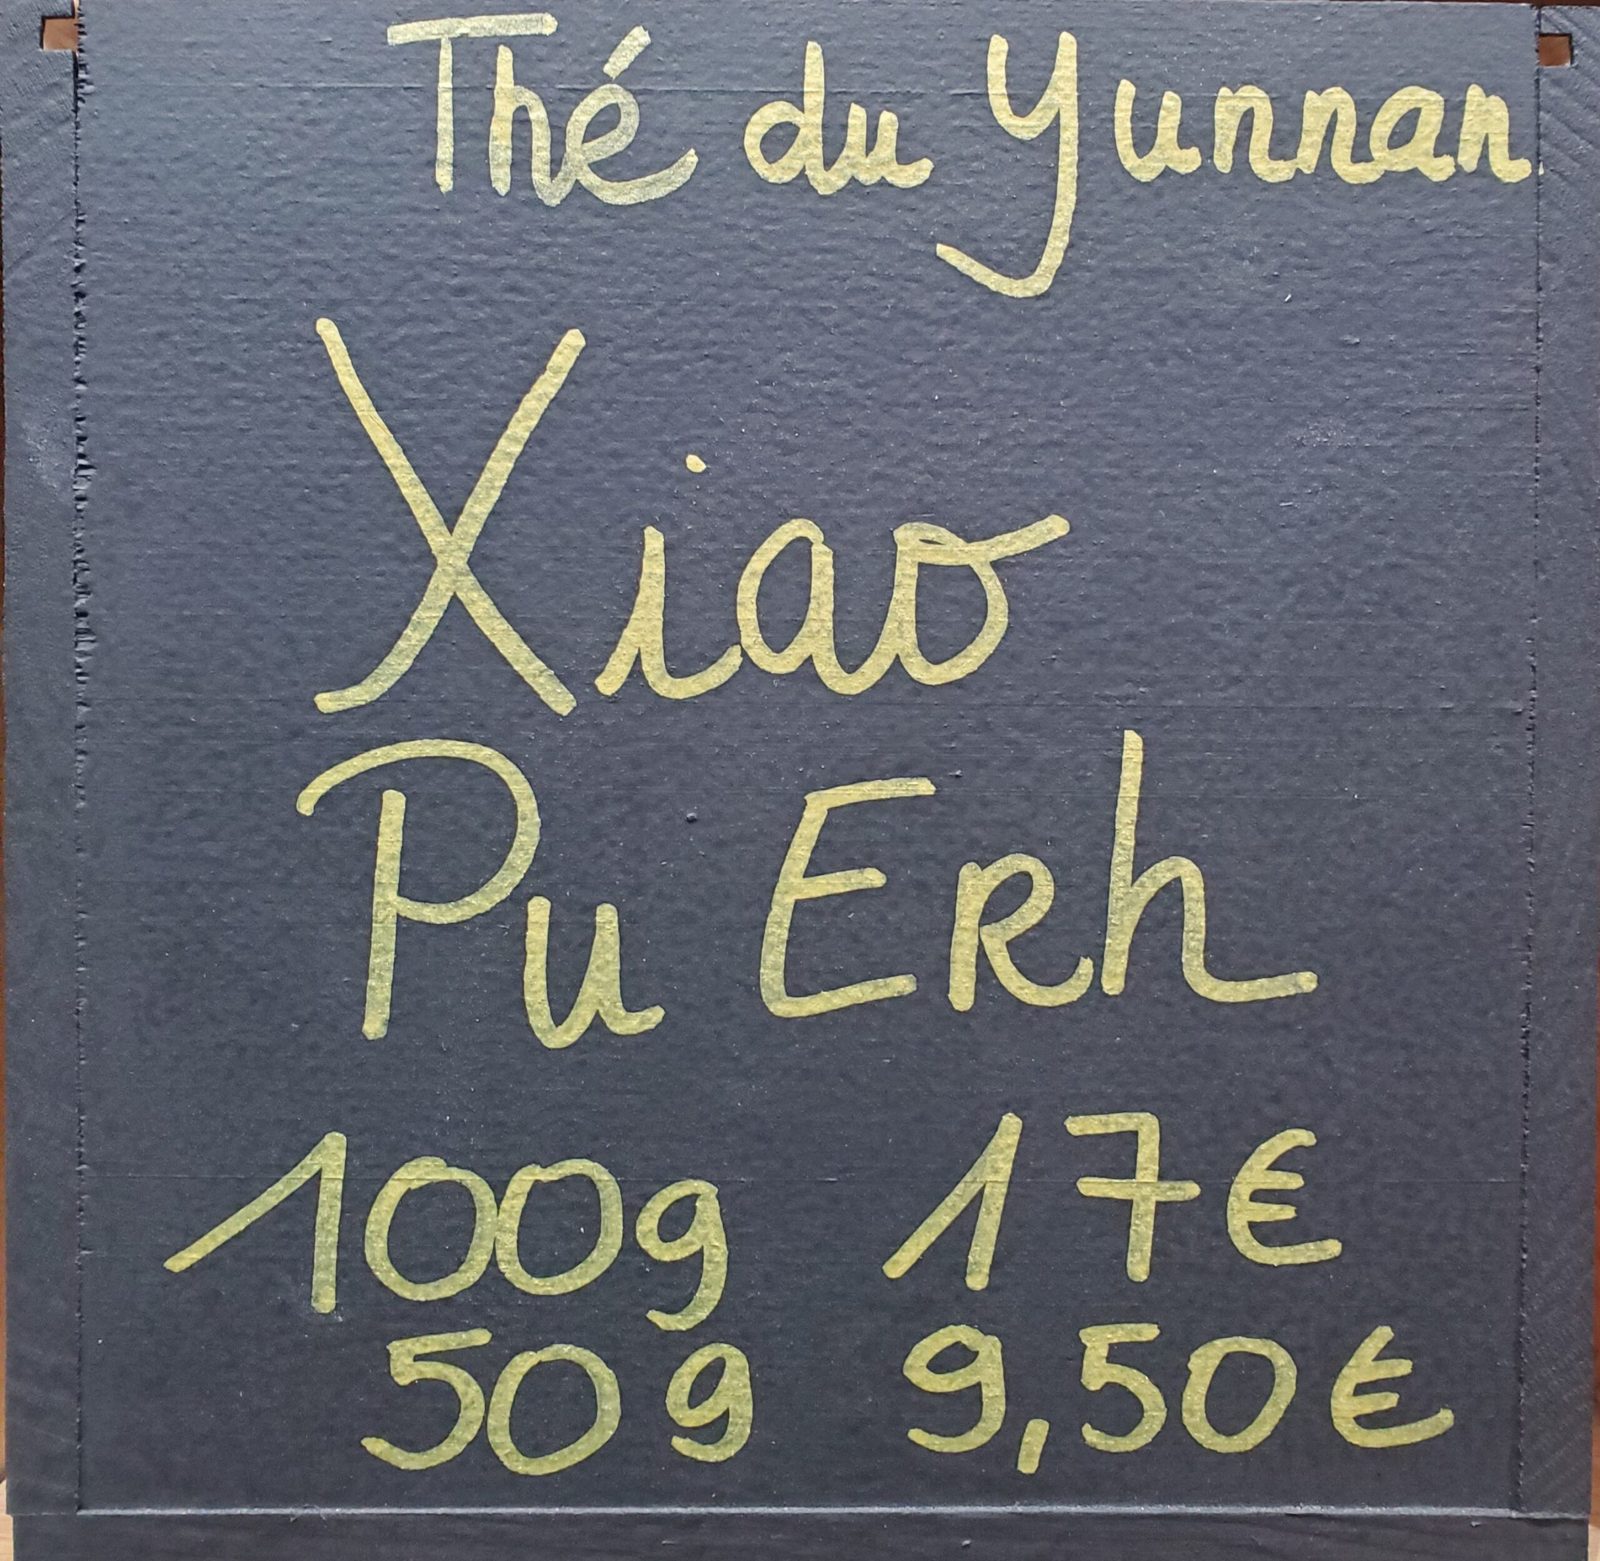 Thé du Yunnan
Xiao
Pu Erh
100g 17€
50g 9,50€